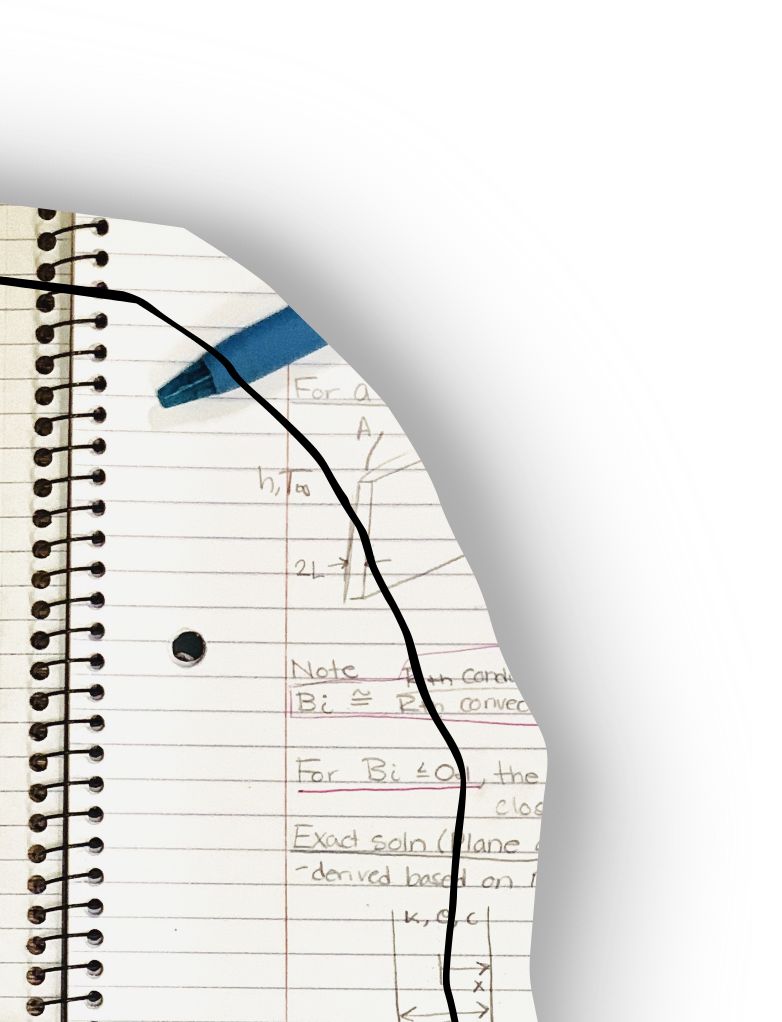 For a
A
h, T∞
2L
Note Rth condu
Bi ≅ Rth convec
For Bi ≤ 0.1, the
clos
Exact soln (Plane
-derived based on
K, ρ, c
x